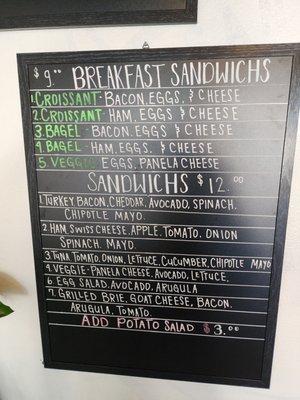 $9.00 BREAKFAST SANDWICHS
1. CROISSANT - BACON, EGGS, & CHEESE
2. CROISSANT HAM, EGGS & CHEESE
3. BAGEL - BACON, EGGS & CHEESE
4. BAGEL - HAM, EGGS, & CHEESE
5. VEGGIE EGGS, PANELA CHEESE
SANDWICHS $12.00
1. TURKEY BACON, CHEDDAR, AVOCADO, SPINACH,
CHIPOTLE MAYO.
2. HAM, SWISS CHEESE, APPLE, TOMATO, ONION
SPINACH, MAYO.
3. TUNA, TOMATO, ONION, LETTUCE, CUCUMBER, CHIPOTLE MAYO
4. VEGGIE - PANELA CHEESE, AVOCADO, LETTUCE,
6. EGG SALAD, AVOCADO, ARUGULA
7. GRILLED BRIE, GOAT CHEESE, BACON,
ARUGULA, TOMATO.
ADD POTATO SALAD $3.00